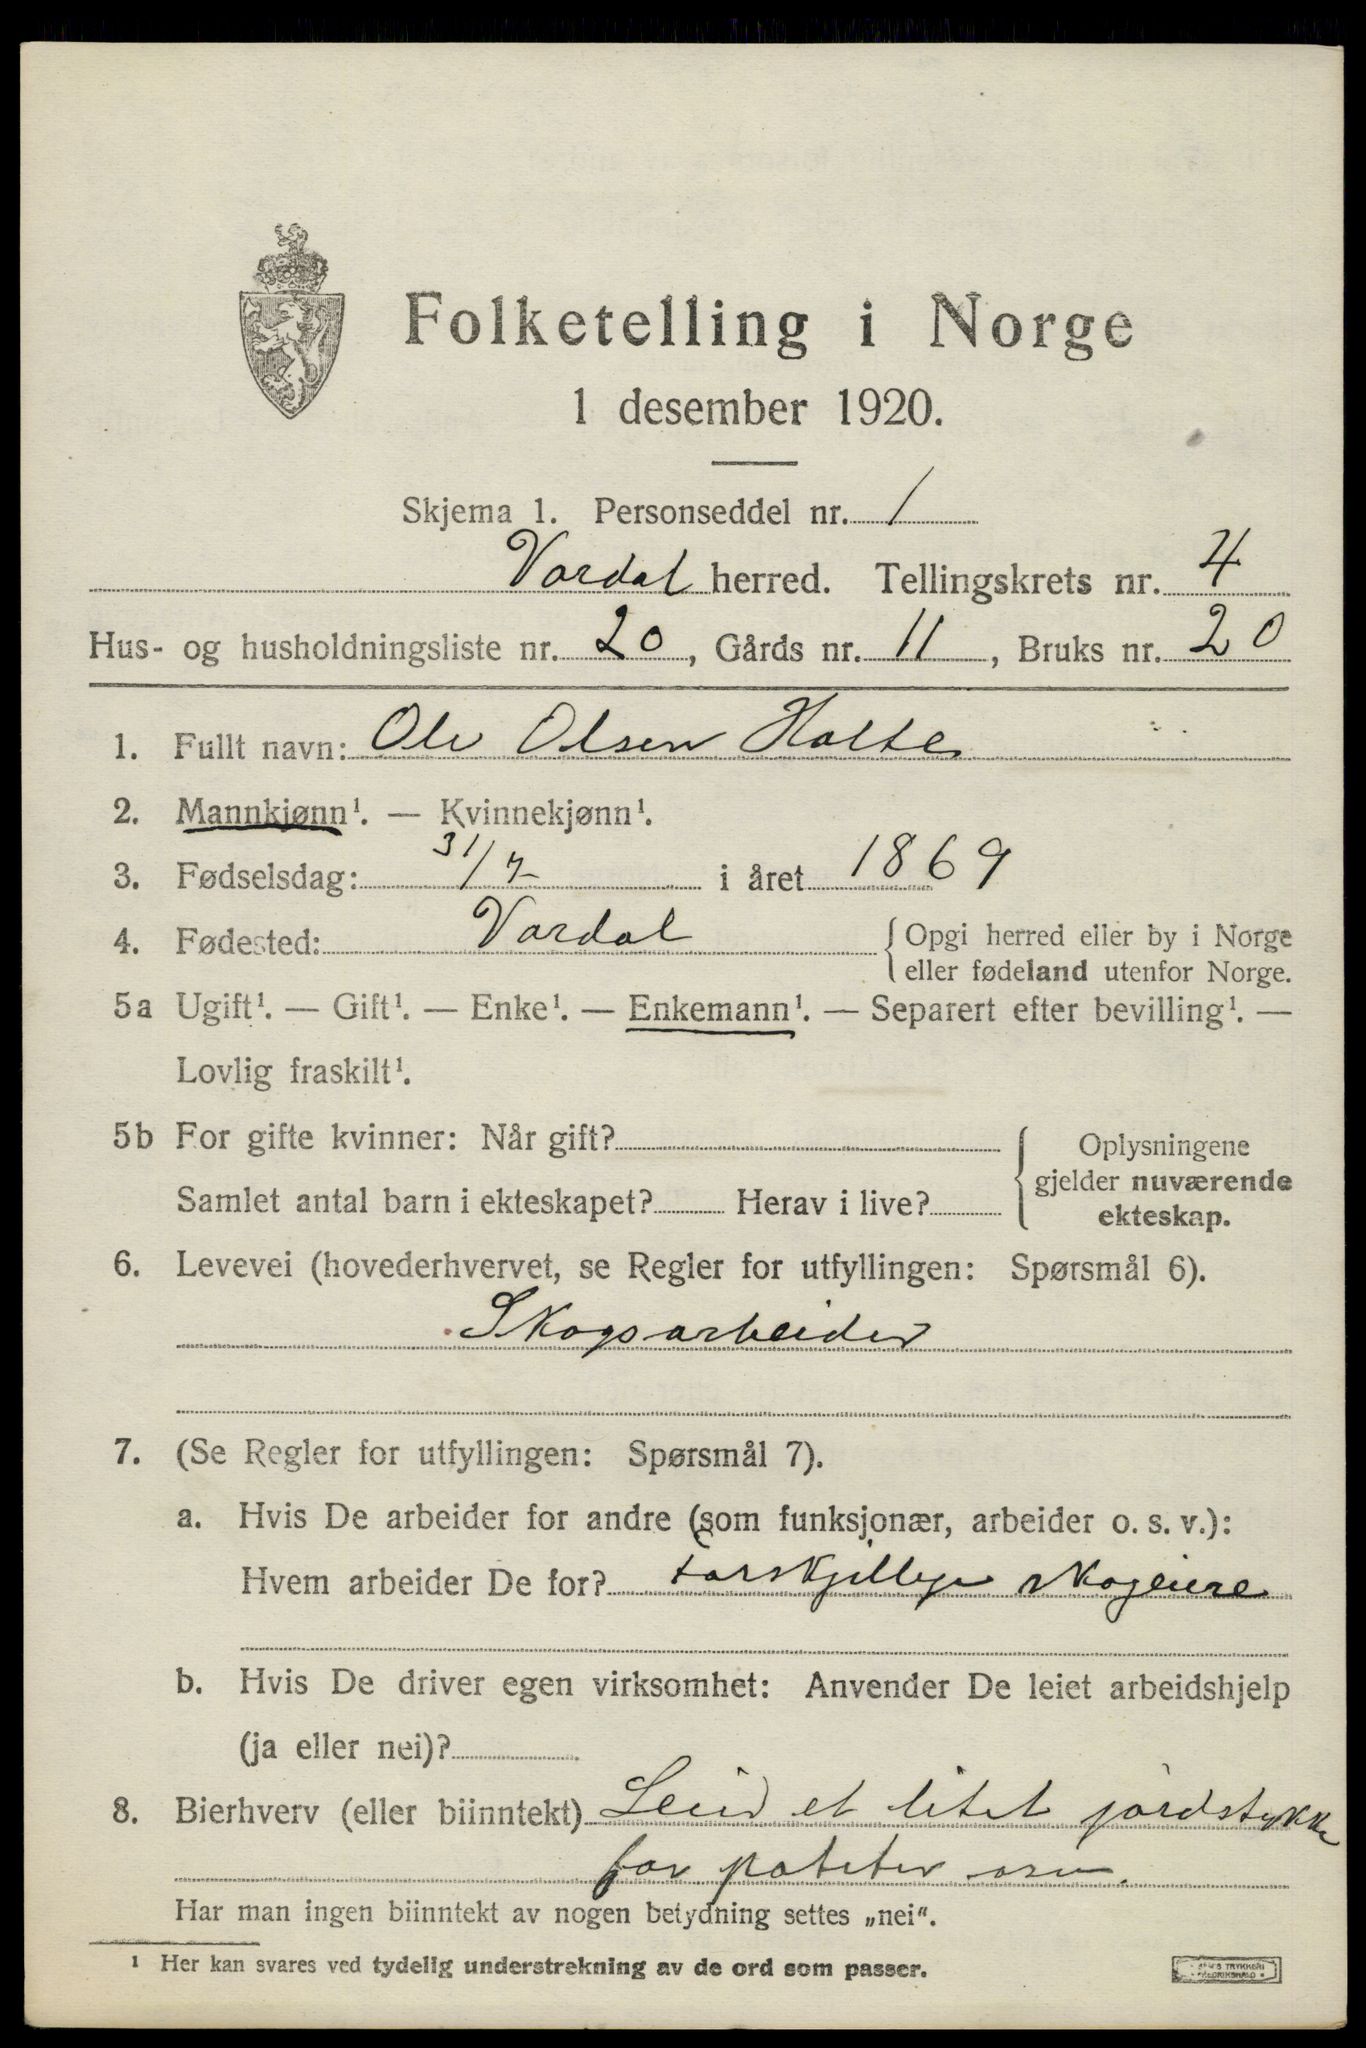 Folketelling i Norge
1 desember 1920.
Skjema 1. Personseddel nr. 1
Vardal herred. Tellingskrets nr. 4
Hus- og husholdningsliste nr. 20, Gårds nr. 11, Bruks nr. 20
1. Fullt navn: Ole Olsen Holte
2. Mannkjønn¹. — Kvinnekjønn¹.
3. Fødselsdag: 31/7 i året 1869
4. Fødested: Vardal { Opgi herred eller by i Norge
eller fødeland utenfor Norge.
5a Ugift¹. — Gift¹. — Enke¹. — Enkemann¹. — Separert efter bevilling¹. —
Lovlig fraskilt¹.
5b For gifte kvinner: Når gift? { Oplysningene
gjelder nuværende
Samlet antal barn i ekteskapet? Herav i live? ekteskap.
6. Levevei (hovederhvervet, se Regler for utfyllingen: Spørsmål 6).
Skogsarbeider
7. (Se Regler for utfyllingen: Spørsmål 7).
a. Hvis De arbeider for andre (som funksjonær, arbeider o. s. v.):
Hvem arbeider De for? forskjellige skogeiere
b. Hvis De driver egen virksomhet: Anvender De leiet arbeidshjelp
(ja eller nei)?
8. Bierhverv (eller biinntekt) Leid et litet jordstykke
for poteter osv.
Har man ingen biinntekt av nogen betydning settes „nei“.
¹ Her kan svares ved tydelig understrekning av de ord som passer.